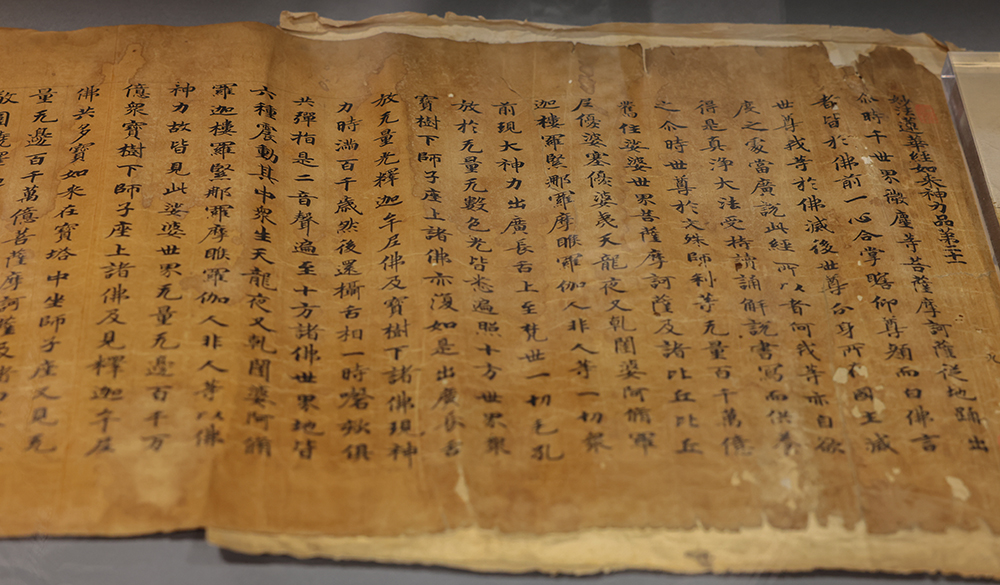 妙法蓮華經如來神力品第廿一
尒時千世界微塵等菩薩摩訶薩從地踊出
者皆於佛前一心合掌瞻仰尊顏而白佛言
世尊我等於佛滅後世尊分身所在國土滅
度之處當廣說此經所以者何我等亦自欲
得是真淨大法受持讀誦解說書寫而供養
之尒時世尊於文殊師利等无量百千萬億
舊住娑婆世界菩薩摩訶薩及諸比丘比丘
尼優婆塞優婆夷天龍夜叉乾闥婆阿脩羅
迦樓羅緊那羅摩睺羅伽人非人等一切衆
前現大神力出廣長舌上至梵世一切毛孔
放於无量无數色光皆悉遍照十方世界衆
寶樹下師子座上諸佛亦復如是出廣長舌
放无量光釋迦牟尼佛及寶樹下諸佛現神
力時滿百千歲然後還攝舌相一時謦欬俱
共彈指是二音聲遍至十方諸佛世界地皆
六種震動其中衆生天龍夜叉乾闥婆阿脩
羅迦樓羅緊那羅摩睺羅伽人非人等以佛
神力故皆見此娑婆世界无量无邊百千万
億衆寶樹下師子座上諸佛及見釋迦牟尼
佛共多寶如來在寶塔中坐師子座又見无
量无邊百千萬億菩薩摩訶薩及諸四
敬圍遶釋